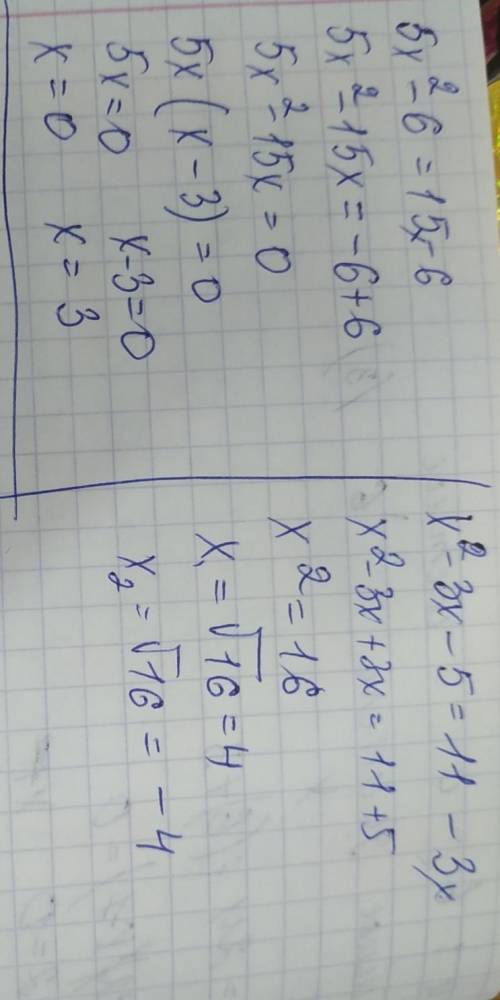 5x² - 6 = 15x - 6
5x² - 15x = -6 + 6
5x² - 15x = 0
5x (x - 3) = 0
5x = 0 x - 3 = 0
x = 0 x = 3
x² - 3x - 5 = 11 - 3x
x² - 3x + 3x = 11 + 5
x² = 16
x₁ = √16 = 4
x₂ = √16 = -4